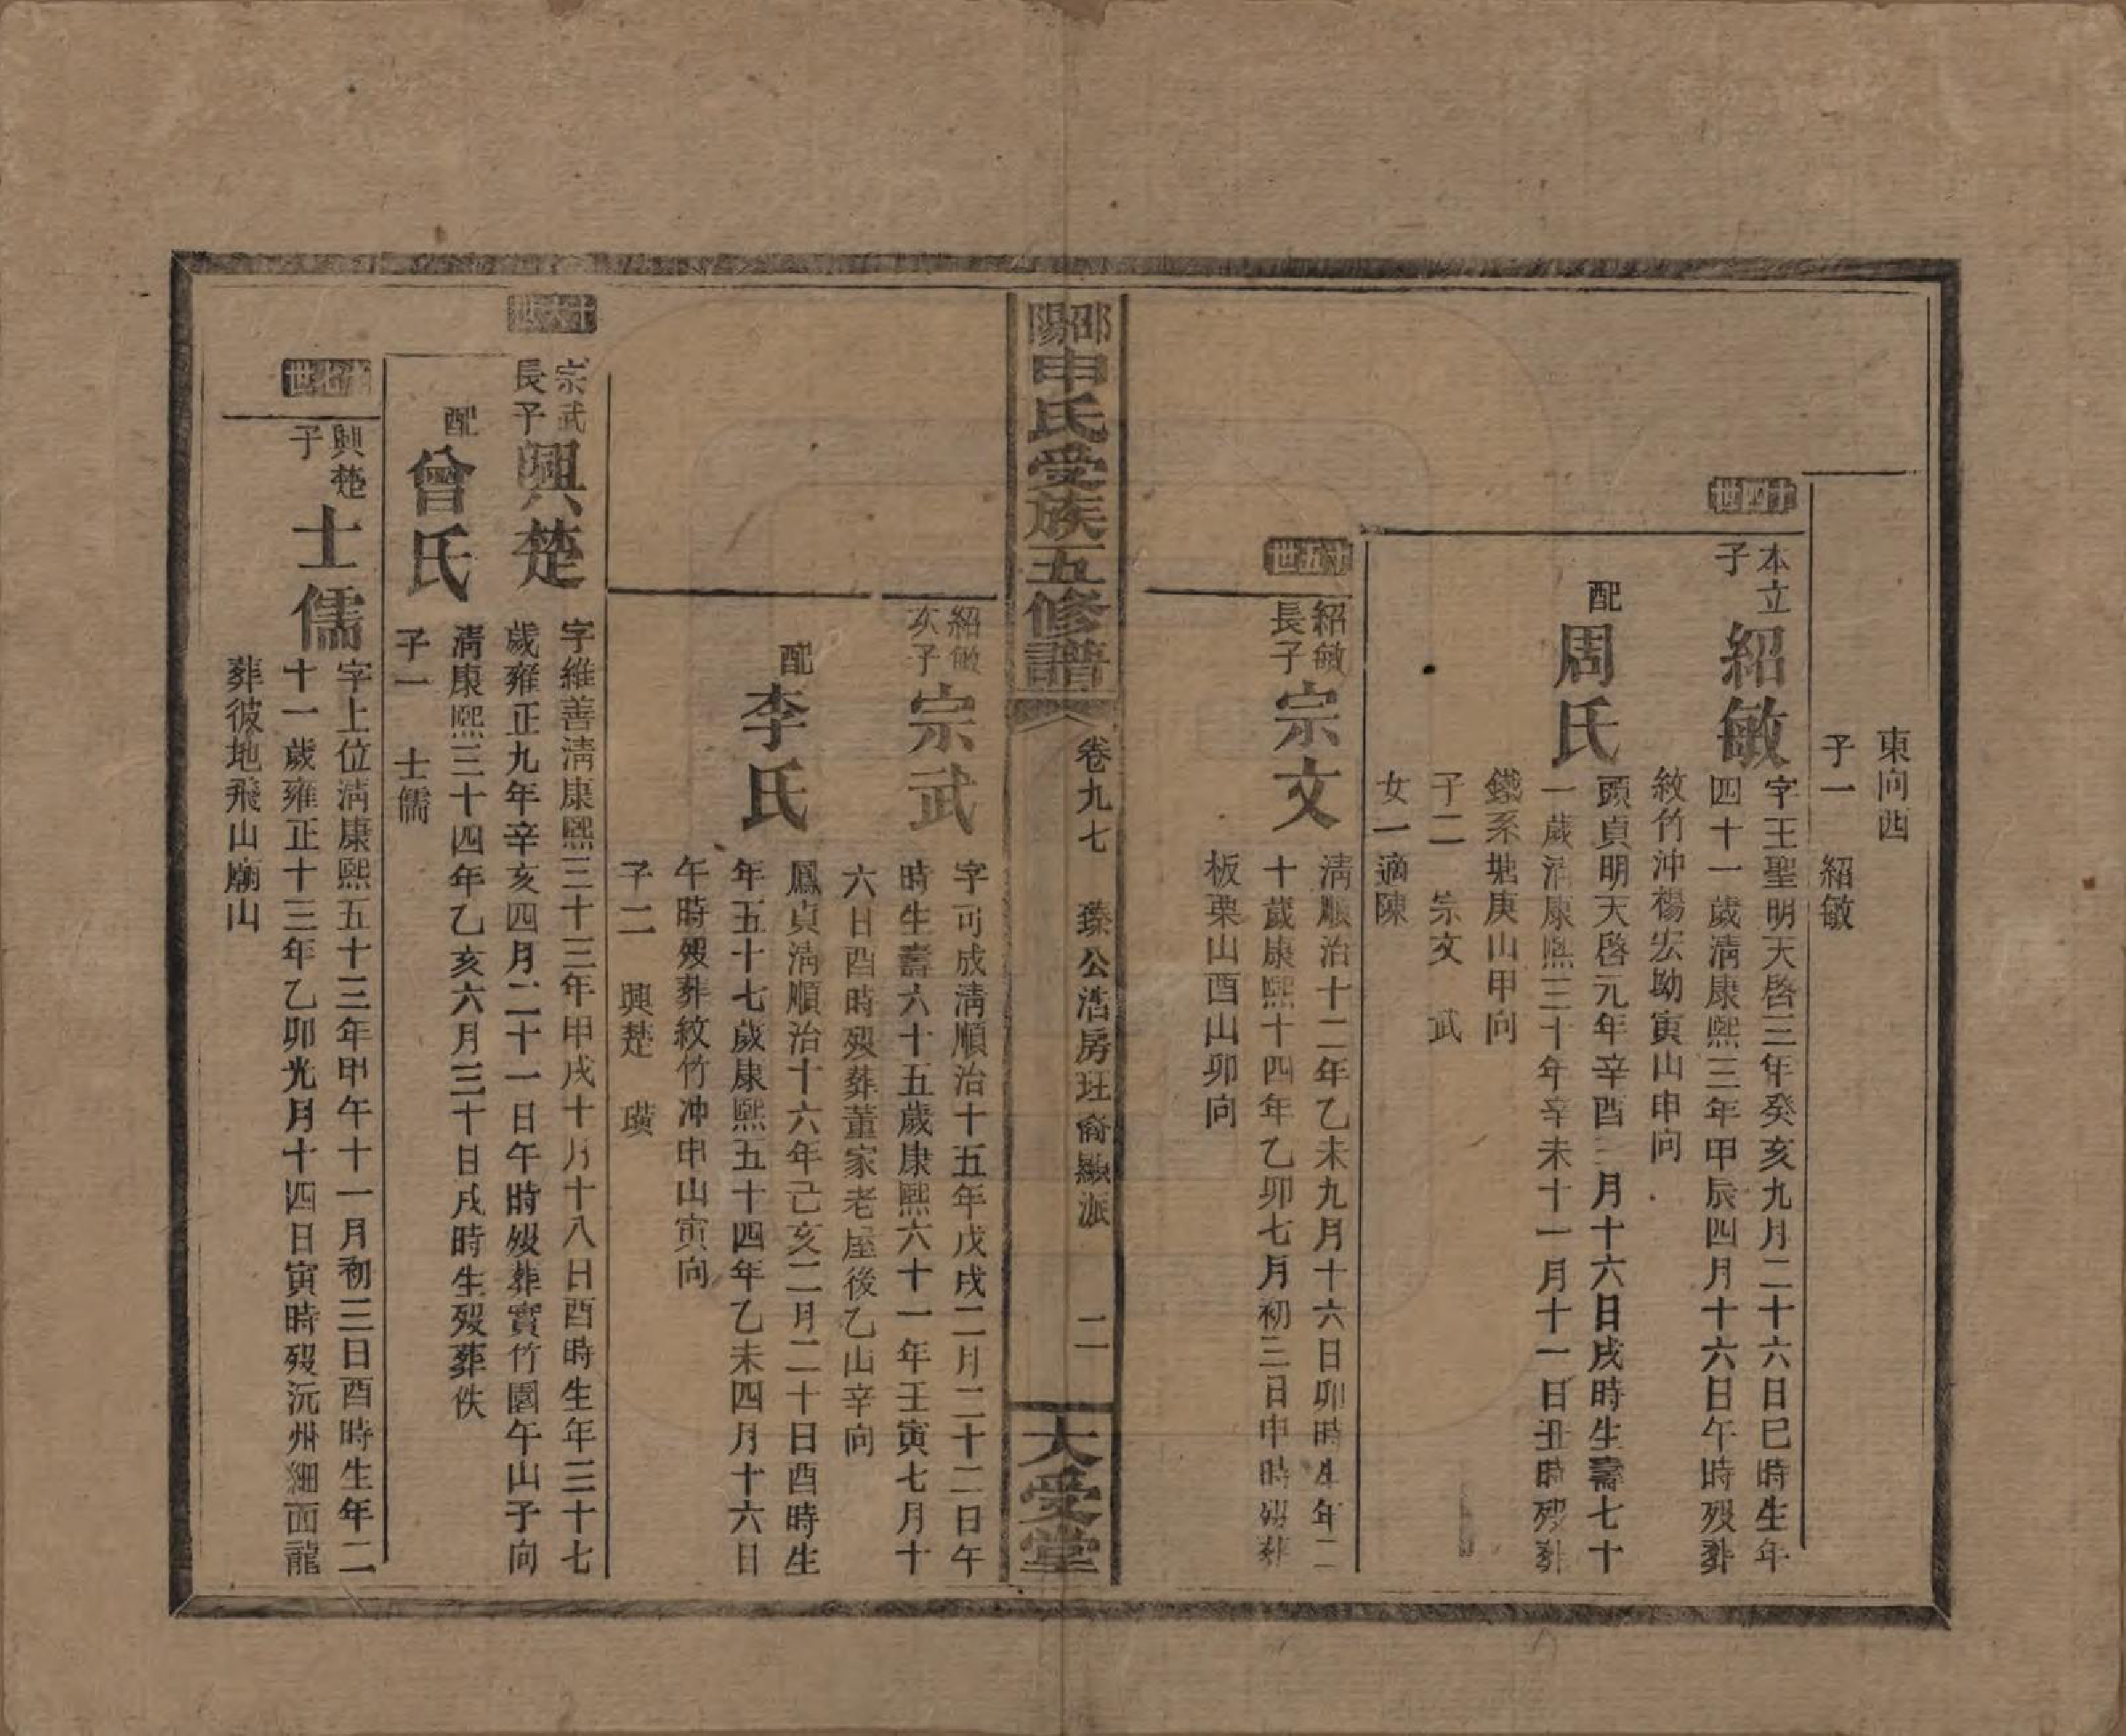 東向西
子一 紹敏
十四世
本立
子
紹敏
字王聖明天啓三年癸亥九月二十六日巳時生年
四十一歲淸康熙三年甲辰四月十六日午時歿葬
紋竹沖楊宏坳寅山申向
配
周氏
頭貞明天啓元年辛酉 月十六日戌時生壽七十
一歲淸康熙三十年辛未十一月十一日丑時歿葬
鐵系塘庚山甲向
子二 宗文 武
女一適陳
十五世
紹敏
長子
宗文
淸順治十二年乙未九月十六日卯時生年二
十歲康熙十四年乙卯七月初三日申時歿葬
板栗山酉山卯向
邵陽申氏受族五修譜
卷九七 臻公浩房玨裔顯派 二
大受堂
紹敏
次子
宗武
字可成淸順治十五年戊戌二月二十二日午
時生壽六十五歲康熙六十一年壬寅七月十
六日酉時歿葬董家老屋後乙山辛向
配
李氏
鳳貞淸順治十六年己亥二月二十日酉時生
年五十七歲康熙五十四年乙未四月十六日
午時歿葬紋竹冲申山寅向
子二 興楚 璜
十六世
宗武
長子
興楚
字維善淸康熙三十三年甲戌十月十八日酉時生年三十七
歲雍正九年辛亥四月二十一日午時歿葬實竹園午山子向
配
曾氏
淸康熙三十四年乙亥六月三十日戌時生歿葬佚
子一 士儒
十七世
興楚
子
士儒
字上位淸康熙五十三年甲午十一月初三日酉時生年二
十一歲雍正十三年乙卯光月十四日寅時歿沅州細面龍
葬彼地飛山廟山